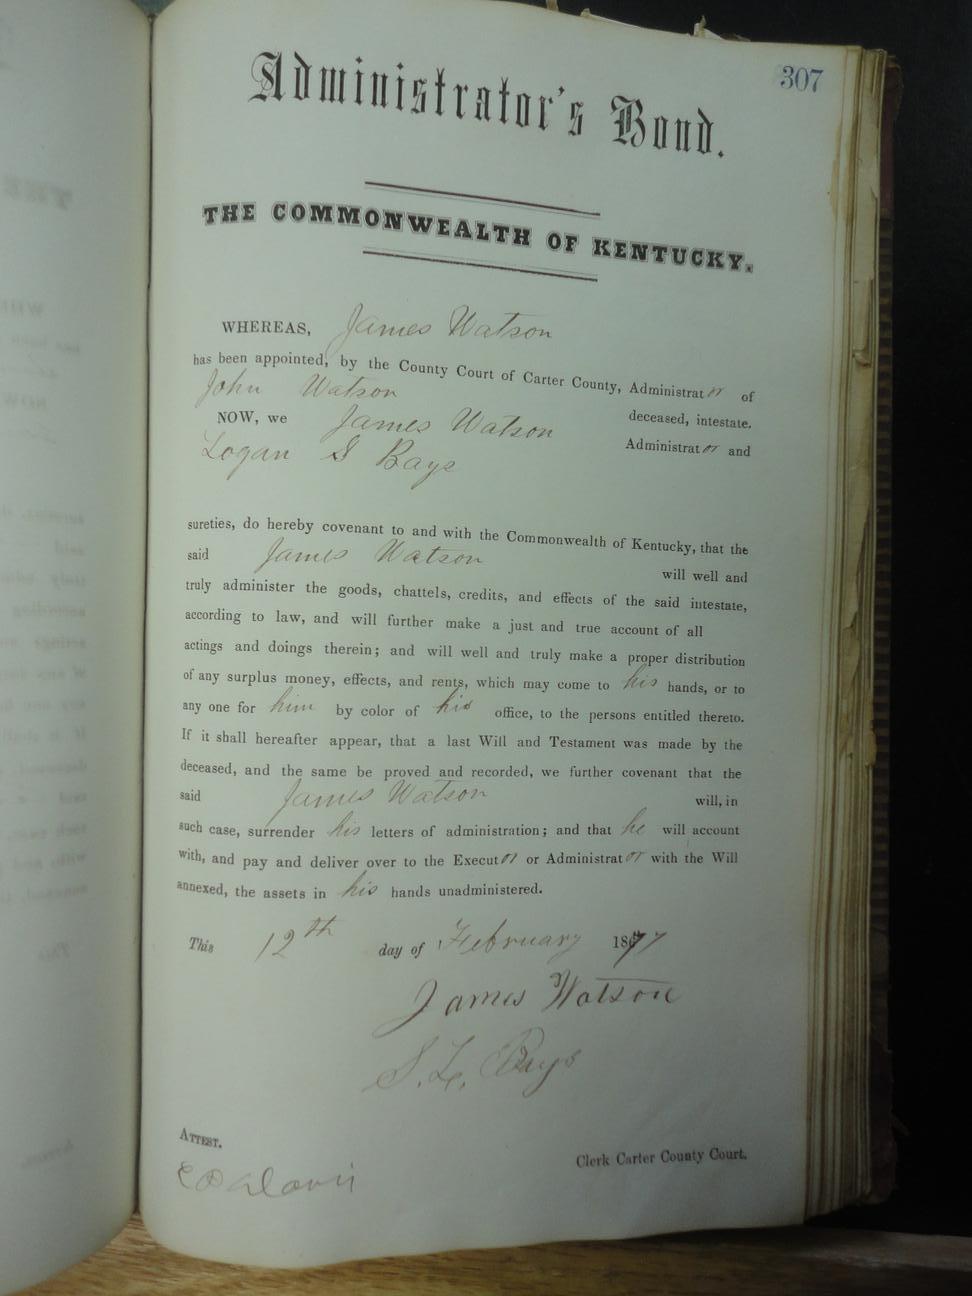 307
Administrator's Bond.
THE COMMONWEALTH OF KENTUCKY.
WHEREAS, James Watson
has been appointed, by the County Court of Carter County, Administrator of
John Watson
deceased, intestate.
NOW, we James Watson
Administrator and
Logan S Bays
sureties, do hereby covenant to and with the Commonwealth of Kentucky, that the
said James Watson will well and
truly administer the goods, chattels, credits, and effects of the said intestate,
according to law, and will further make a just and true account of all
actings and doings therein; and will well and truly make a proper distribution
of any surplus money, effects, and rents, which may come to his hands, or to
any one for him by color of his office, to the persons entitled thereto.
If it shall hereafter appear, that a last Will and Testament was made by the
deceased, and the same be proved and recorded, we further covenant that the
said James Watson will, in
such case, surrender his letters of administration; and that he will account
with, and pay and deliver over to the Executor or Administrator with the Will
annexed, the assets in his hands unadministered.
This 12th day of February 1877
James Watson
S. L. Bays
ATTEST.
Clerk Carter County Court.